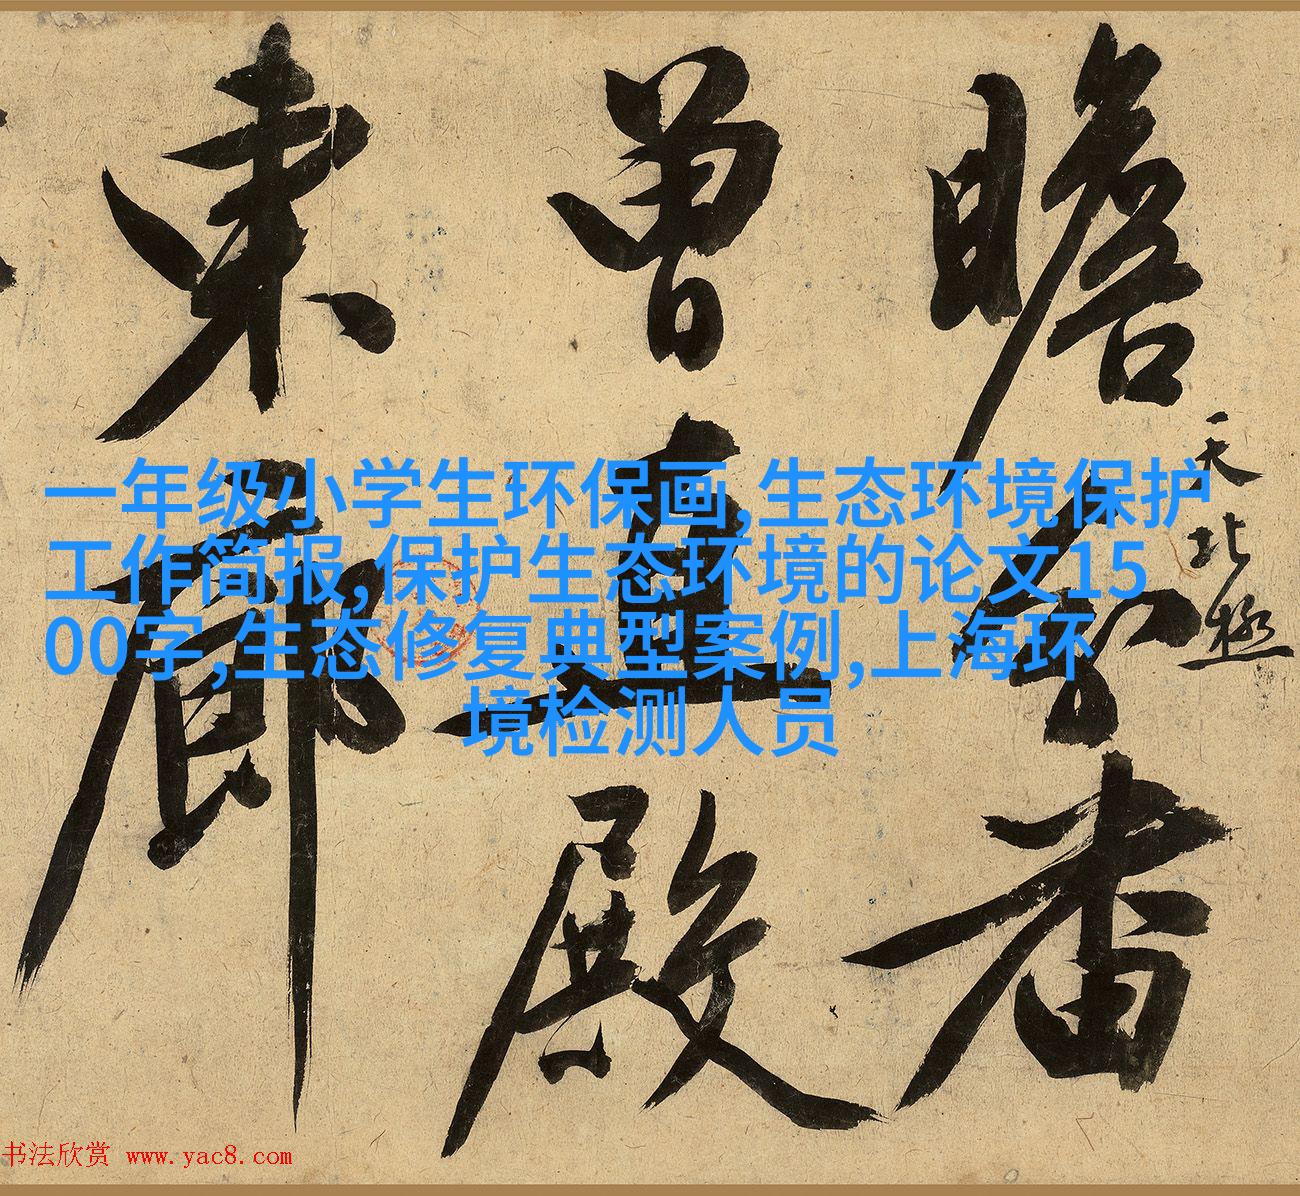 瞻
曾
直
殿
東
廊
番
天
北
極
一年级小学生环保画,生态环境保护
工作简报,保护生态环境的论文15
00字,生态修复典型案例,上海环
境检测人员
书法欣赏 www.yac8.com